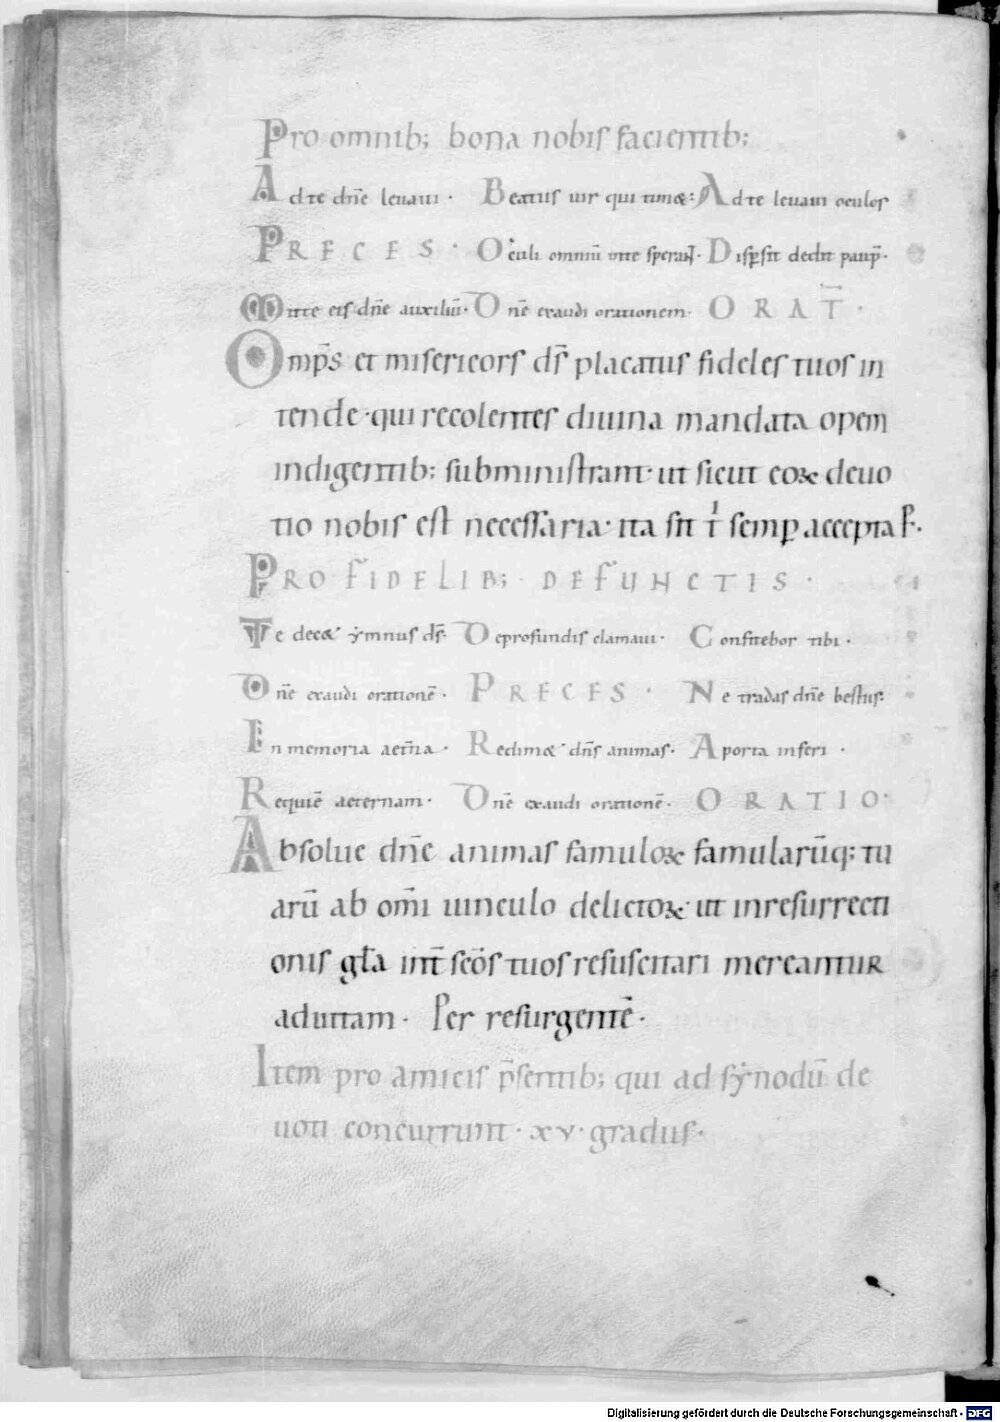 Pro omnib; bona nobis facientib;
Ad te dn̄e leuaui · Beatus uir qui timet: Ad te leuaui oculos
PRECES · Oculi omniū in te sperant· Dispsit dedit paup̄·
Mitte eis dn̄e auxiliū· Dn̄e exaudi orationem· ORAT̄·
Omp̄s et misericors ds̄ placatus fideles tuos in
tende · qui recolentes diuina mandata opem
indigentib; subministrant· ut sicut eoꝝ deuo
tio nobis est necessaria· ita sit t semp accepta P·
PRO FIDELIB; DEFUNCTIS ·
Te decet ymnus ds̄· De profundis clamaui· Confitebor tibi ·
Dn̄e exaudi orationē · PRECES · Ne tradas dn̄e bestiis:
In memoria aet̄na · Redimet dn̄s animas· A porta inferi ·
Requiē aeternam· Dn̄e exaudi orationē· ORATIO·
Absolue dn̄e animas famuloꝝ famularūq; tu
arū ab om̄i uinculo delictoꝝ· ut in resurrecti
onis gła int̄ sc̄os tuos resuscitari mereantur
ad uitam· Per resurgentē·
Item pro amicis p̄sentib; qui ad synodū de
uoti concurrunt· xv· gradus·
Digitalisierung gefördert durch die Deutsche Forschungsgemeinschaft - DFG